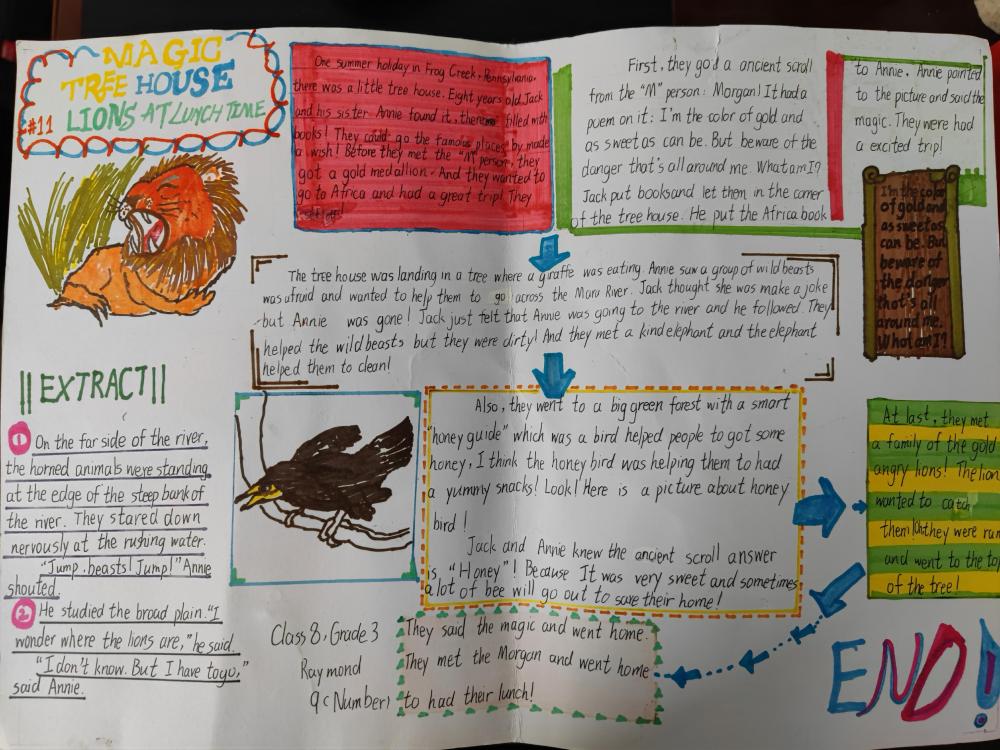 MAGIC
TREE HOUSE
#11 LIONS AT LUNCH TIME
One summer holiday in Frog Creek, Pennsylvania,
there was a little tree house. Eight years old Jack
and his sister Annie found it, filled with
books! They could go the famous places by made
a wish! Before they met the "M" person, they
got a gold medallion. And they wanted to
go to Africa and had a great trip! They
First, they god a ancient scroll
from the "M" person: Morgan! It had a
poem on it: I'm the color of gold and
as sweet as can be. But beware of the
danger that's all around me. What am I?
Jack put books and let them in the corner
of the tree house. He put the Africa book
to Annie. Annie pointed
to the picture and said the
magic. They were had
a excited trip!
I'm the color
of gold and
as sweet as
can be. But
beware of
the danger
that's all
around me.
What am I?
The tree house was landing in a tree where a giraffe was eating. Annie saw a group of wild beasts
was afraid and wanted to help them to go across the Mara River. Jack thought she was make a joke
but Annie was gone! Jack just felt that Annie was going to the river and he followed. They
helped the wild beasts but they were dirty! And they met a kind elephant and the elephant
helped them to clean!
||EXTRACT||
1 On the far side of the river,
the horned animals were standing
at the edge of the steep bank of
the river. They stared down
nervously at the rushing water.
"Jump, beasts! Jump!" Annie
shouted.
2 He studied the broad plain. "I
wonder where the lions are," he said.
"I don't know. But I have to go,"
said Annie.
Also, they went to a big green forest with a smart
"honey guide" which was a bird helped people to got some
honey, I think the honey bird was helping them to had
a yummy snacks! Look! Here is a picture about honey
bird!
Jack and Annie knew the ancient scroll answer
is "Honey"! Because It was very sweet and sometimes
a lot of bee will go out to save their home!
At last, they met
a family of the gold
angry lions! The lion
wanted to catch
them they were run
and went to the to
of the tree!
Class 8, Grade 3
Raymond
9 (Number)
They said the magic and went home.
They met the Morgan and went home
to had their lunch!
END!